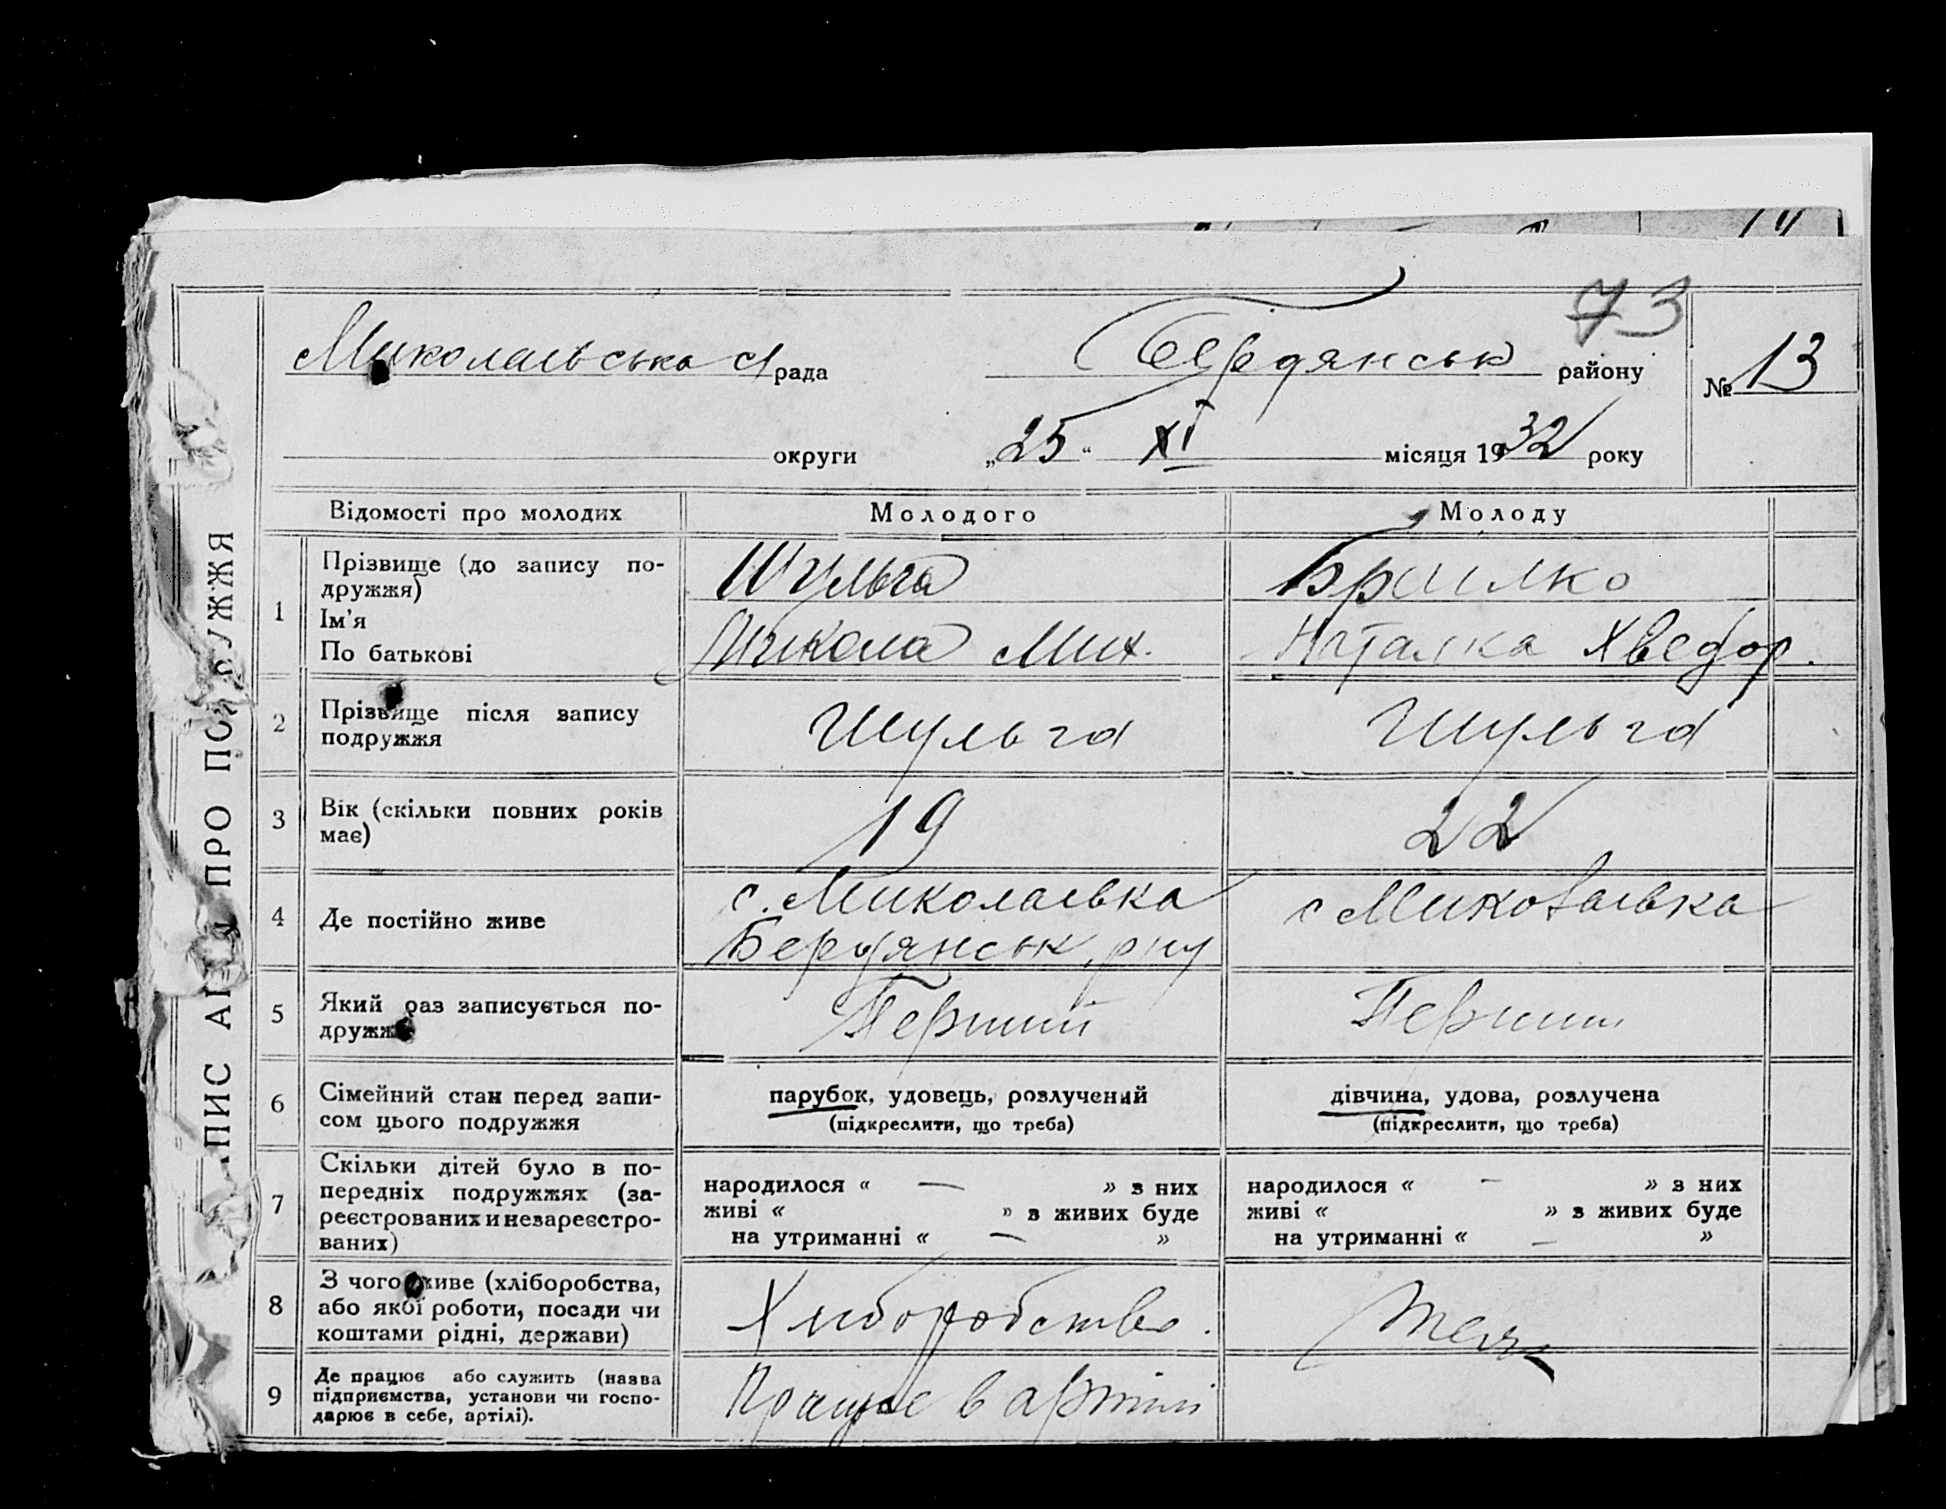 73
Миколаївська с/рада Бердянськ району № 13
округи „25“ XI місяця 1932 року
ПИС АК ПРО ПОДРУЖЖЯ
Відомості про молодих Молодого Молоду
1 Прізвище (до запису по-
дружжя) Шульга Браилко
Ім'я
По батькові Микола Мих. Наталка Хведор.
2 Прізвище після запису
подружжя Шульга Шульга
3 Вік (скільки повних років
має) 19 22
4 Де постійно живе с. Миколаївка с Миколаївка
Бердянськ, рну
5 Який раз записується по-
дружжя Перший Перший
6 Сімейний стан перед запи-
сом цього подружжя
парубок, удовець, розлучений дівчина, удова, розлучена
(підкреслити, що треба) (підкреслити, що треба)
7 Скільки дітей було в по-
передніх подружжях (за-
реєстрованих и незареєстро-
ваних)
народилося « — » з них народилося « — » з них
живі « » з живих буде живі « » з живих буде
на утриманні « — » на утриманні « — »
8 З чого живе (хліборобства,
або якої роботи, посади чи
коштами рідні, держави)
Хліборобство. Теж
9 Де працює або служить (назва
підприємства, установи чи госпо-
дарює в себе, артілі).
Працює в артілі